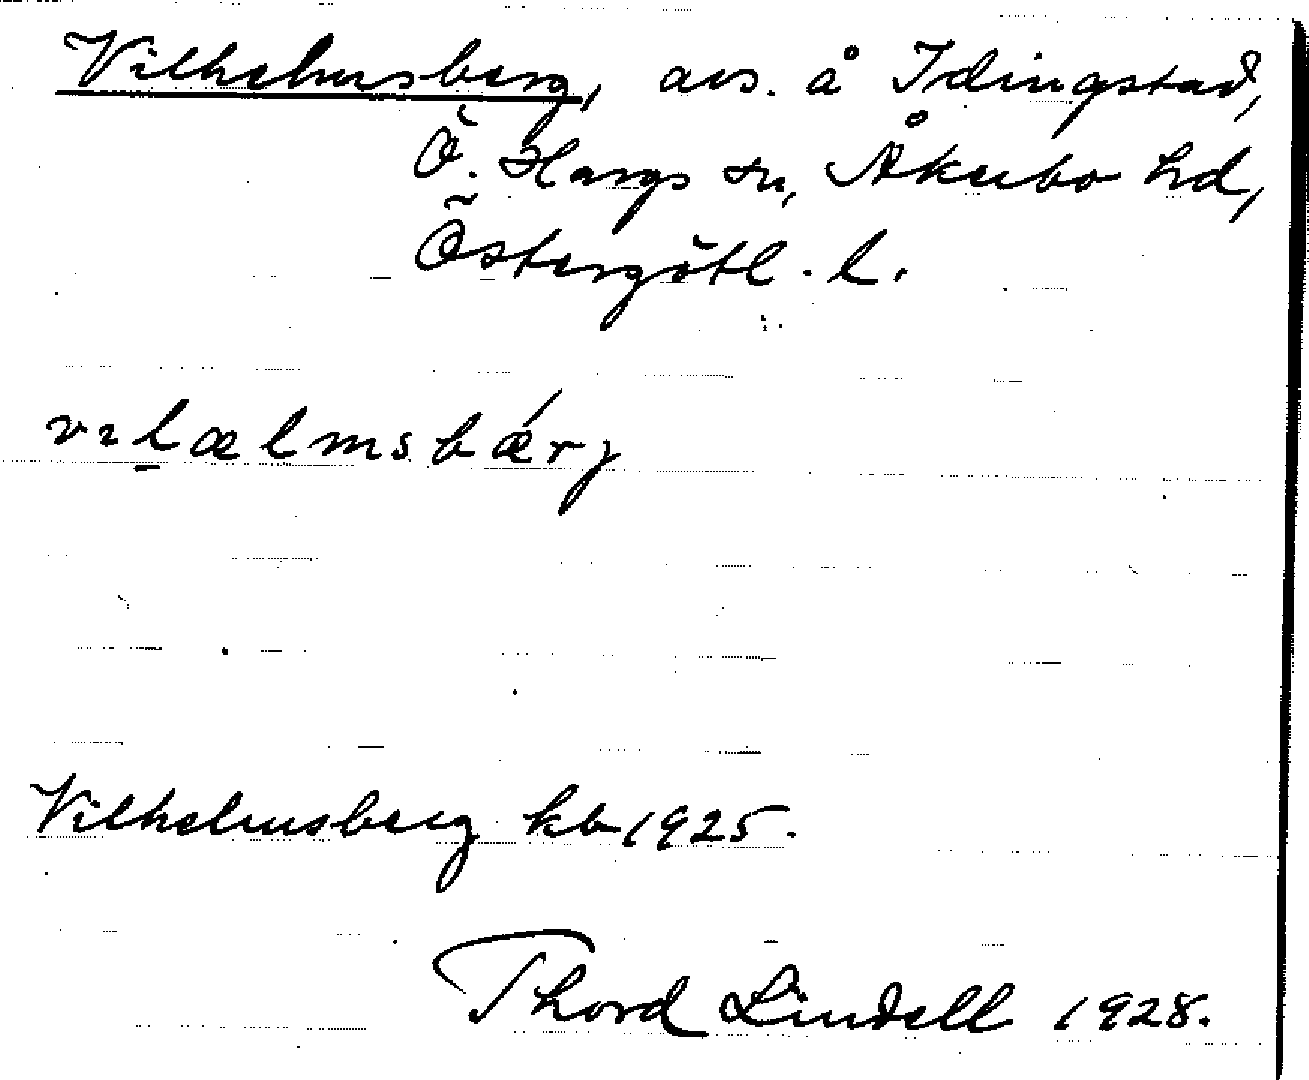 Vilhelmsberg, avs. å Idingstad,
Ö. Hargs sn, Åkerbo hd,
Östergötl. l.
vılælmsbǽrj
Vilhelmsberg kb 1925.
Thord Lindell 1928.